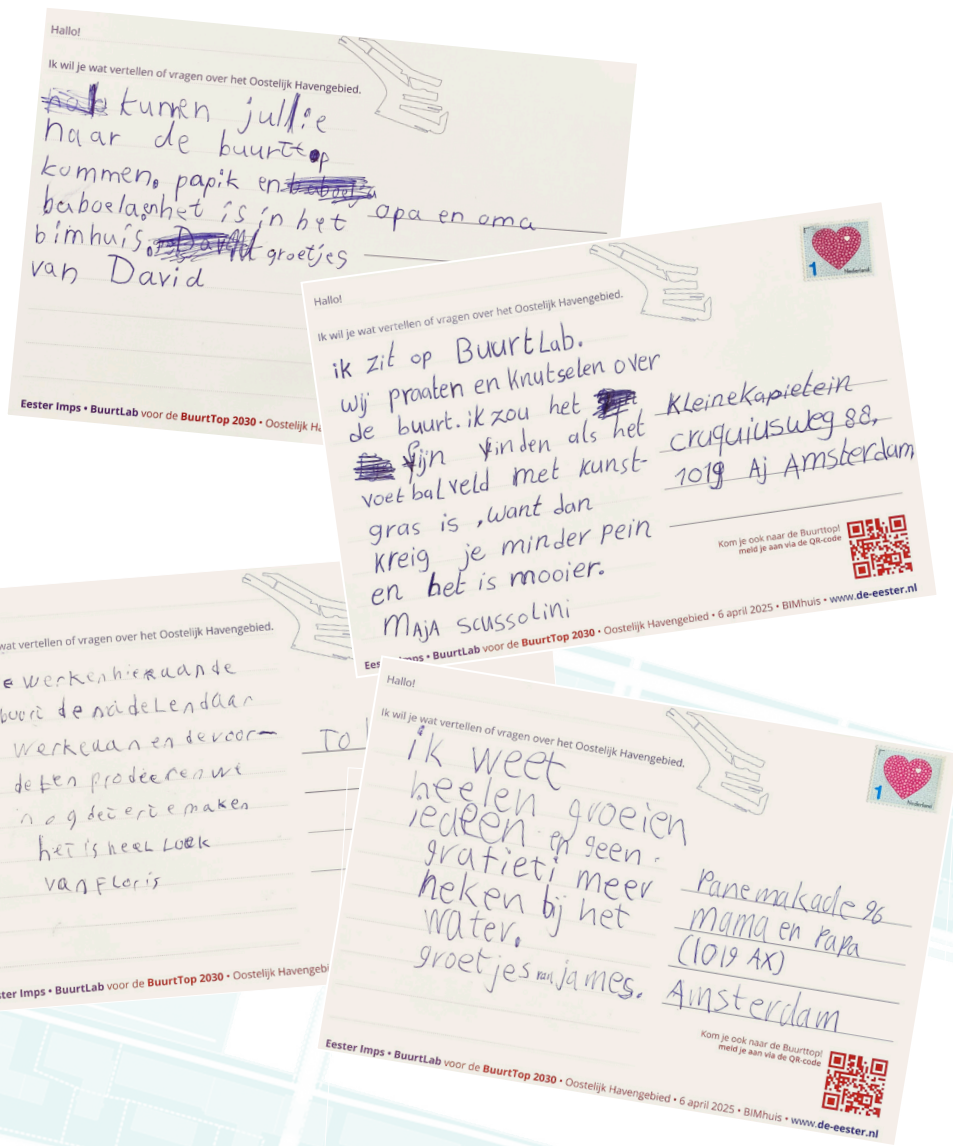 Hallo!
Ik wil je wat vertellen of vragen over het Oostelijk Havengebied.
kunnen jullie
naar de buurttop
kommen. papik en
baboelaenhet is in het
bimhuis. groetjes
van David
opa en oma
Eester Imps • BuurtLab voor de BuurtTop 2030 • Oostelijk Ha
Hallo!
Ik wil je wat vertellen of vragen over het Oostelijk Havengebied.
ik zit op BuurtLab.
wij praaten en knutselen over
de buurt. ik zou het
fijn vinden als het
voetbalveld met kunst-
gras is, want dan
kreig je minder pein
en het is mooier.
MAJA SCUSSOLINI
1
Nederland
KleineKapietein
cruquiusweg 88,
1019 Aj Amsterdam
Kom je ook naar de Buurttop!
meld je aan via de QR-code
Eester Imps • BuurtLab voor de BuurtTop 2030 • Oostelijk Havengebied • 6 april 2025 • BIMhuis • www.de-eester.nl
wat vertellen of vragen over het Oostelijk Havengebied.
e werkenhieraande
buurt
het is heel Luek
van Floris
TO
ster Imps • BuurtLab voor de BuurtTop 2030 • Oostelijk Havengebi
Hallo!
Ik wil je wat vertellen of vragen over het Oostelijk Havengebied.
ik weet
heelen groeien
iedeen en geen
grafieti meer
heken bij het
water.
groetjes van james.
1
Nederland
Panemakade 96
mama en Papa
(1019 AX)
Amsterdam
Kom je ook naar de Buurttop!
meld je aan via de QR-code
Eester Imps • BuurtLab voor de BuurtTop 2030 • Oostelijk Havengebied • 6 april 2025 • BIMhuis • www.de-eester.nl